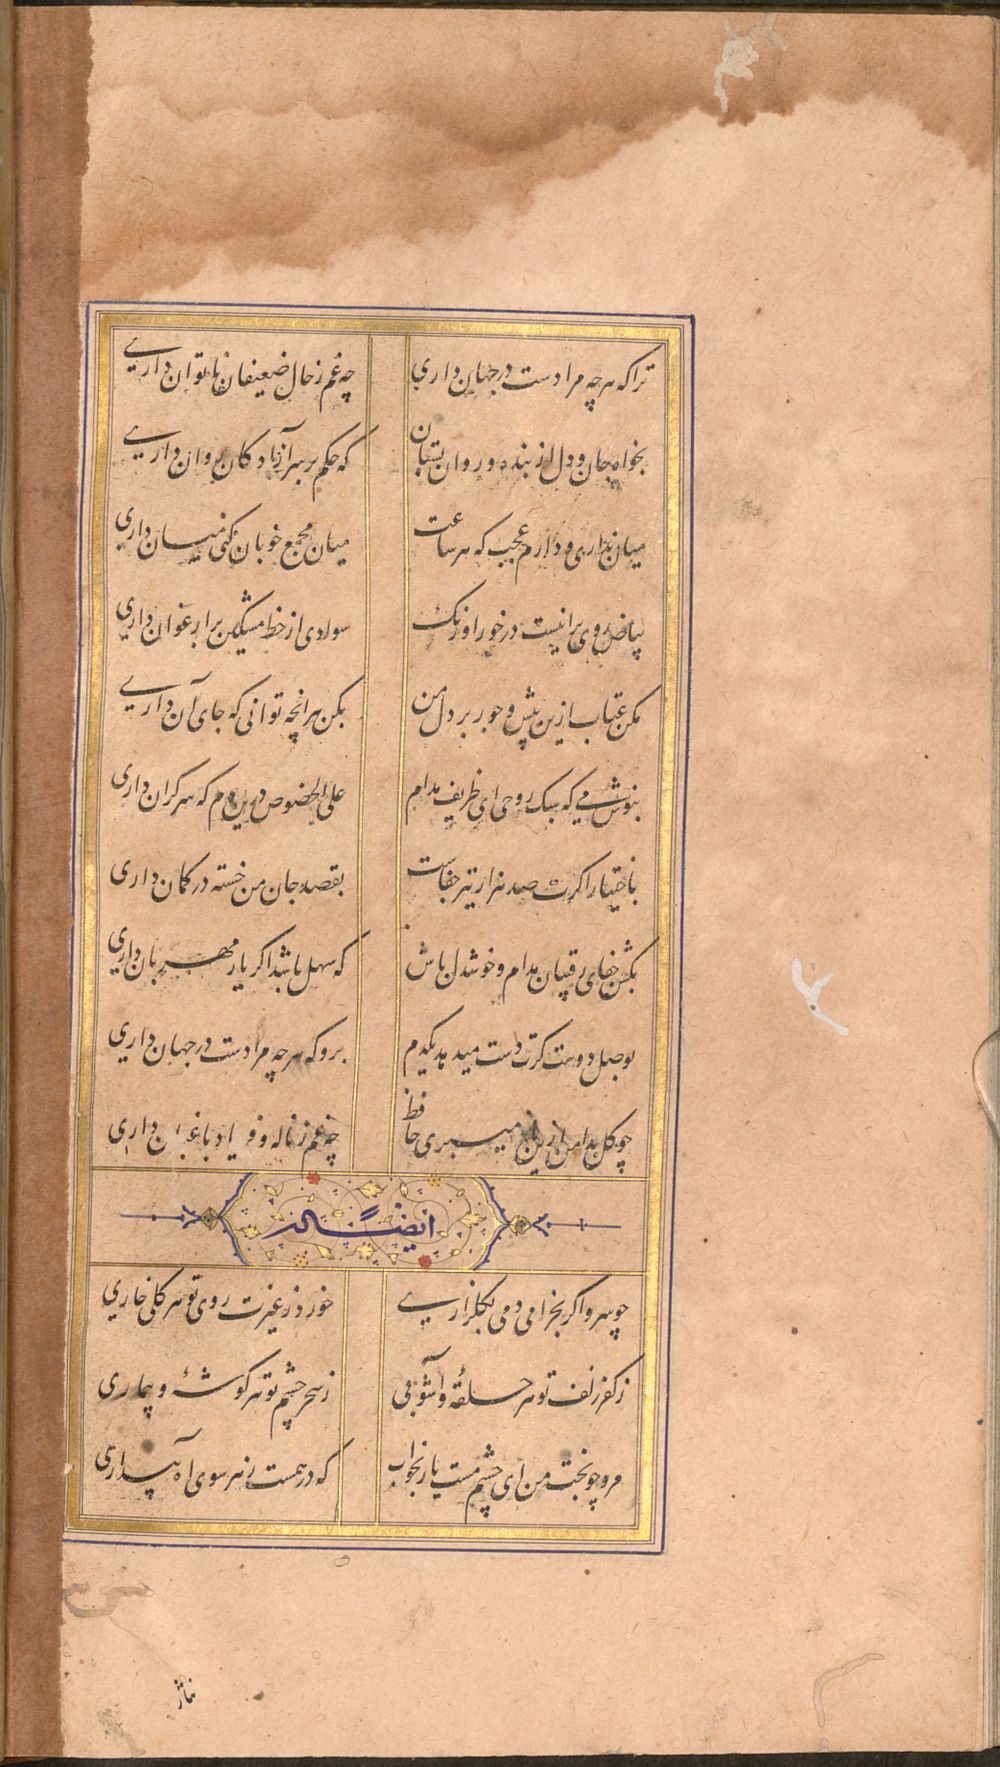 ترا که هر چه مرادست در جهان داری چه غم ز حال ضعیفان ناتوان داری
بخواه جان و دل از بنده و روان بستان که حکم بر سر آزادکان روان داری
میان نداری و دارم عجب که هر ساعت میان مجمع خوبان کنی میان داری
بیاض روی ترا نیست در خور اورنک سوادی از خط مشکین بر ارغوان داری
مکن عتاب ازین بیش و جور بر دل من بکن هر انچه توانی که جای آن داری
بنوش می که سبک روحی ای ظریف مدام علی الخصوص درین دم که سر کران داری
باختیار اکرت صد هزار تیر جفاست بقصد جان من خسته در کمان داری
بکش جفای رقیبان مدام و خوشدل باش که سهل باشد اکر یار مهربان داری
بوصل دوست کرت دست میدهد یکدم برو که هر چه مرادست در جهان داری
چو کل بدامن ازین باغ میبری حافظ چه غم ز ناله و فریاد باغبان داری
ایضا له
چو سرو اکر بخرامی دمی بکلزاری خورد ز غیرت روی تو هر کلی خاری
ز کفر زلف تو هر حلقۀ و آشوبی ز سحر چشم تو هر کوشۀ و بیماری
مرو چو بخت من ای چشم مست یار بخواب که در پیست ز هر سوی آه بیداری